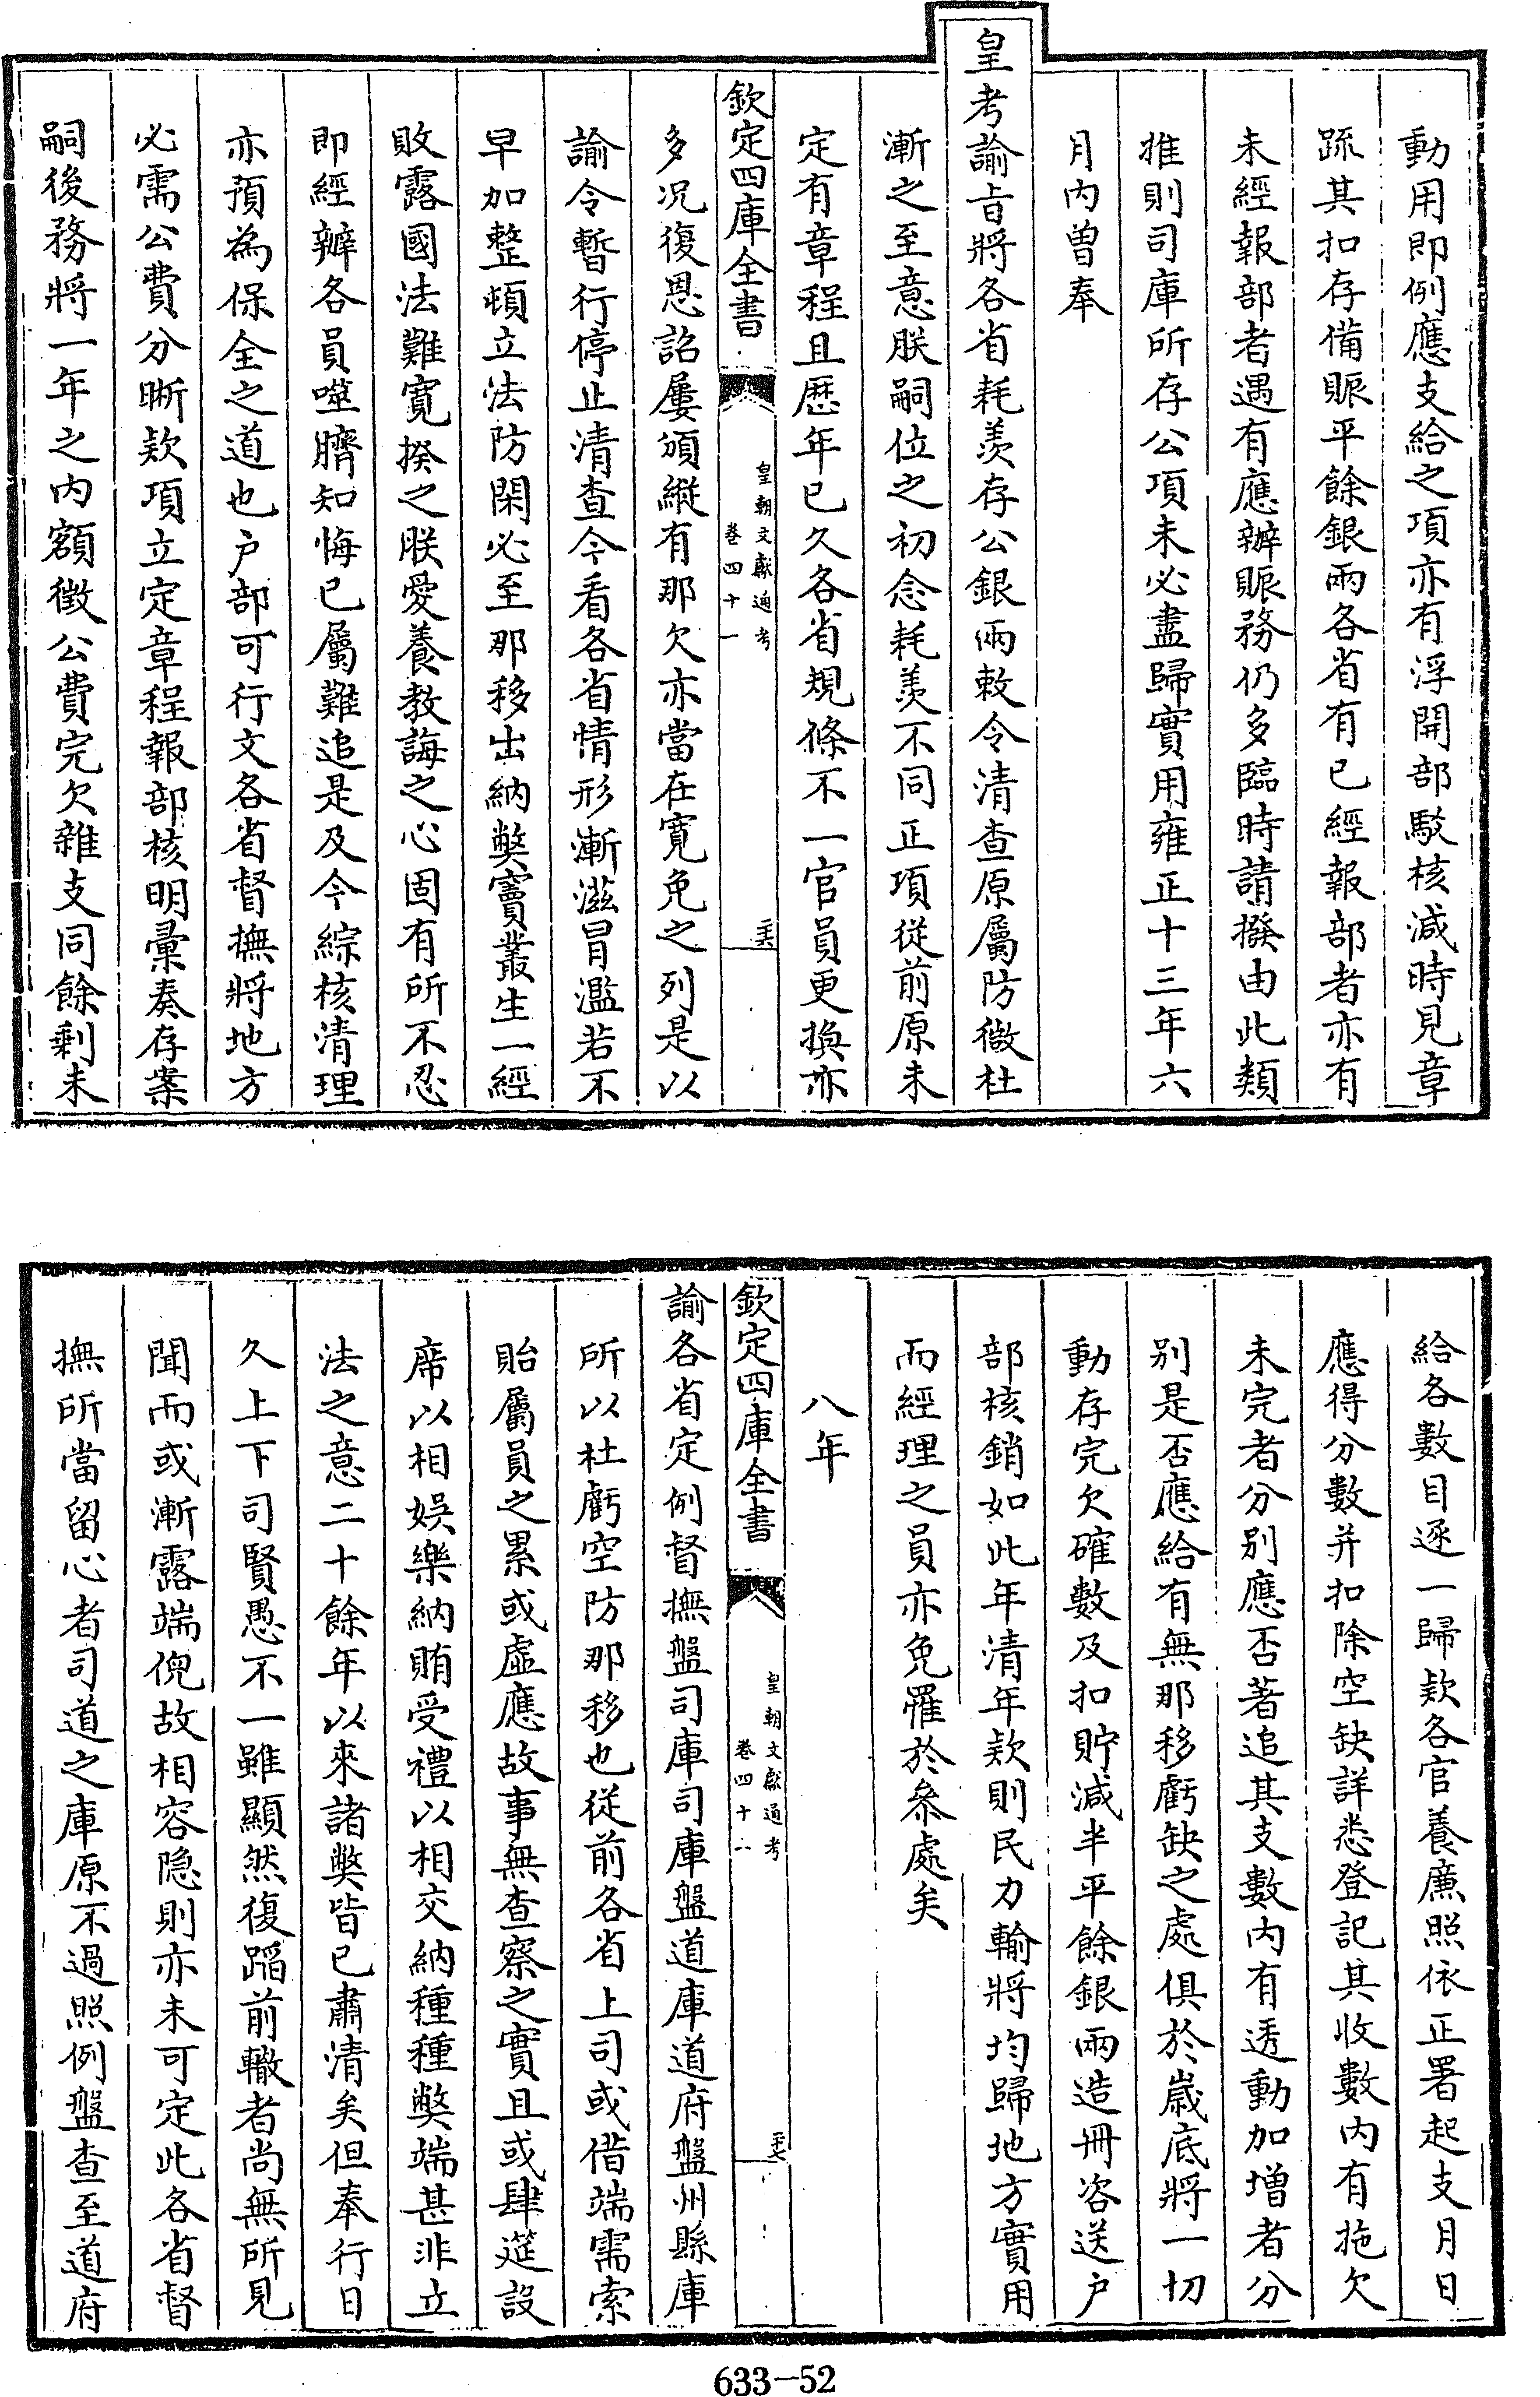 動用即例應支給之項亦有浮開部駁核減時見章
疏其扣存備賑平餘銀兩各省有已經報部者亦有
未經報部者遇有應辦賑務仍多臨時請撥由此類
推則司庫所存公項未必盡歸實用雍正十三年六
月内曽奉
皇考諭旨將各省耗羨存公銀兩敕令清查原屬防微杜
漸之至意朕嗣位之初念耗羨不同正項從前原未
定有章程且歴年已久各省規條不一官員更換亦
欽定四庫全書
皇朝文獻通考
卷四十一
三六
多况復恩詔屢頒縦有那欠亦當在寛免之列是以
諭令暫行停止清查今看各省情形漸滋冒濫若不
早加整頓立法防閑必至那移出納弊竇叢生一經
敗露國法難寛揆之朕愛養教誨之心固有所不忍
即經辦各員噬臍知悔已屬難追是及今綜核清理
亦預為保全之道也户部可行文各省督撫將地方
必需公費分晰欵項立定章程報部核明彙奏存案
嗣後務將一年之内額徵公費完欠雜支同餘剩未
給各數目逐一歸欵各官養亷照依正署起支月日
應得分數并扣除空缺詳悉登記其收數内有拖欠
未完者分别應否著追其支數内有透動加增者分
别是否應給有無那移虧缺之處俱於嵗底將一切
動存完欠確數及扣貯減半平餘銀兩造冊咨送户
部核銷如此年清年欵則民力輸將均歸地方實用
而經理之員亦免罹於參處矣
八年
欽定四庫全書
皇朝文獻通考
卷四十一
三七
諭各省定例督撫盤司庫司庫盤道庫道府盤州縣庫
所以杜虧空防那移也從前各省上司或借端需索
貽屬員之累或虛應故事無查察之實且或肆筵設
席以相娛樂納賄受禮以相交納種種弊端甚非立
法之意二十餘年以來諸弊皆已肅清矣但奉行日
久上下司賢愚不一雖顯然復蹈前轍者尚無所見
聞而或漸露端倪故相容隐則亦未可定此各省督
撫所當留心者司道之庫原不過照例盤查至道府
633-52